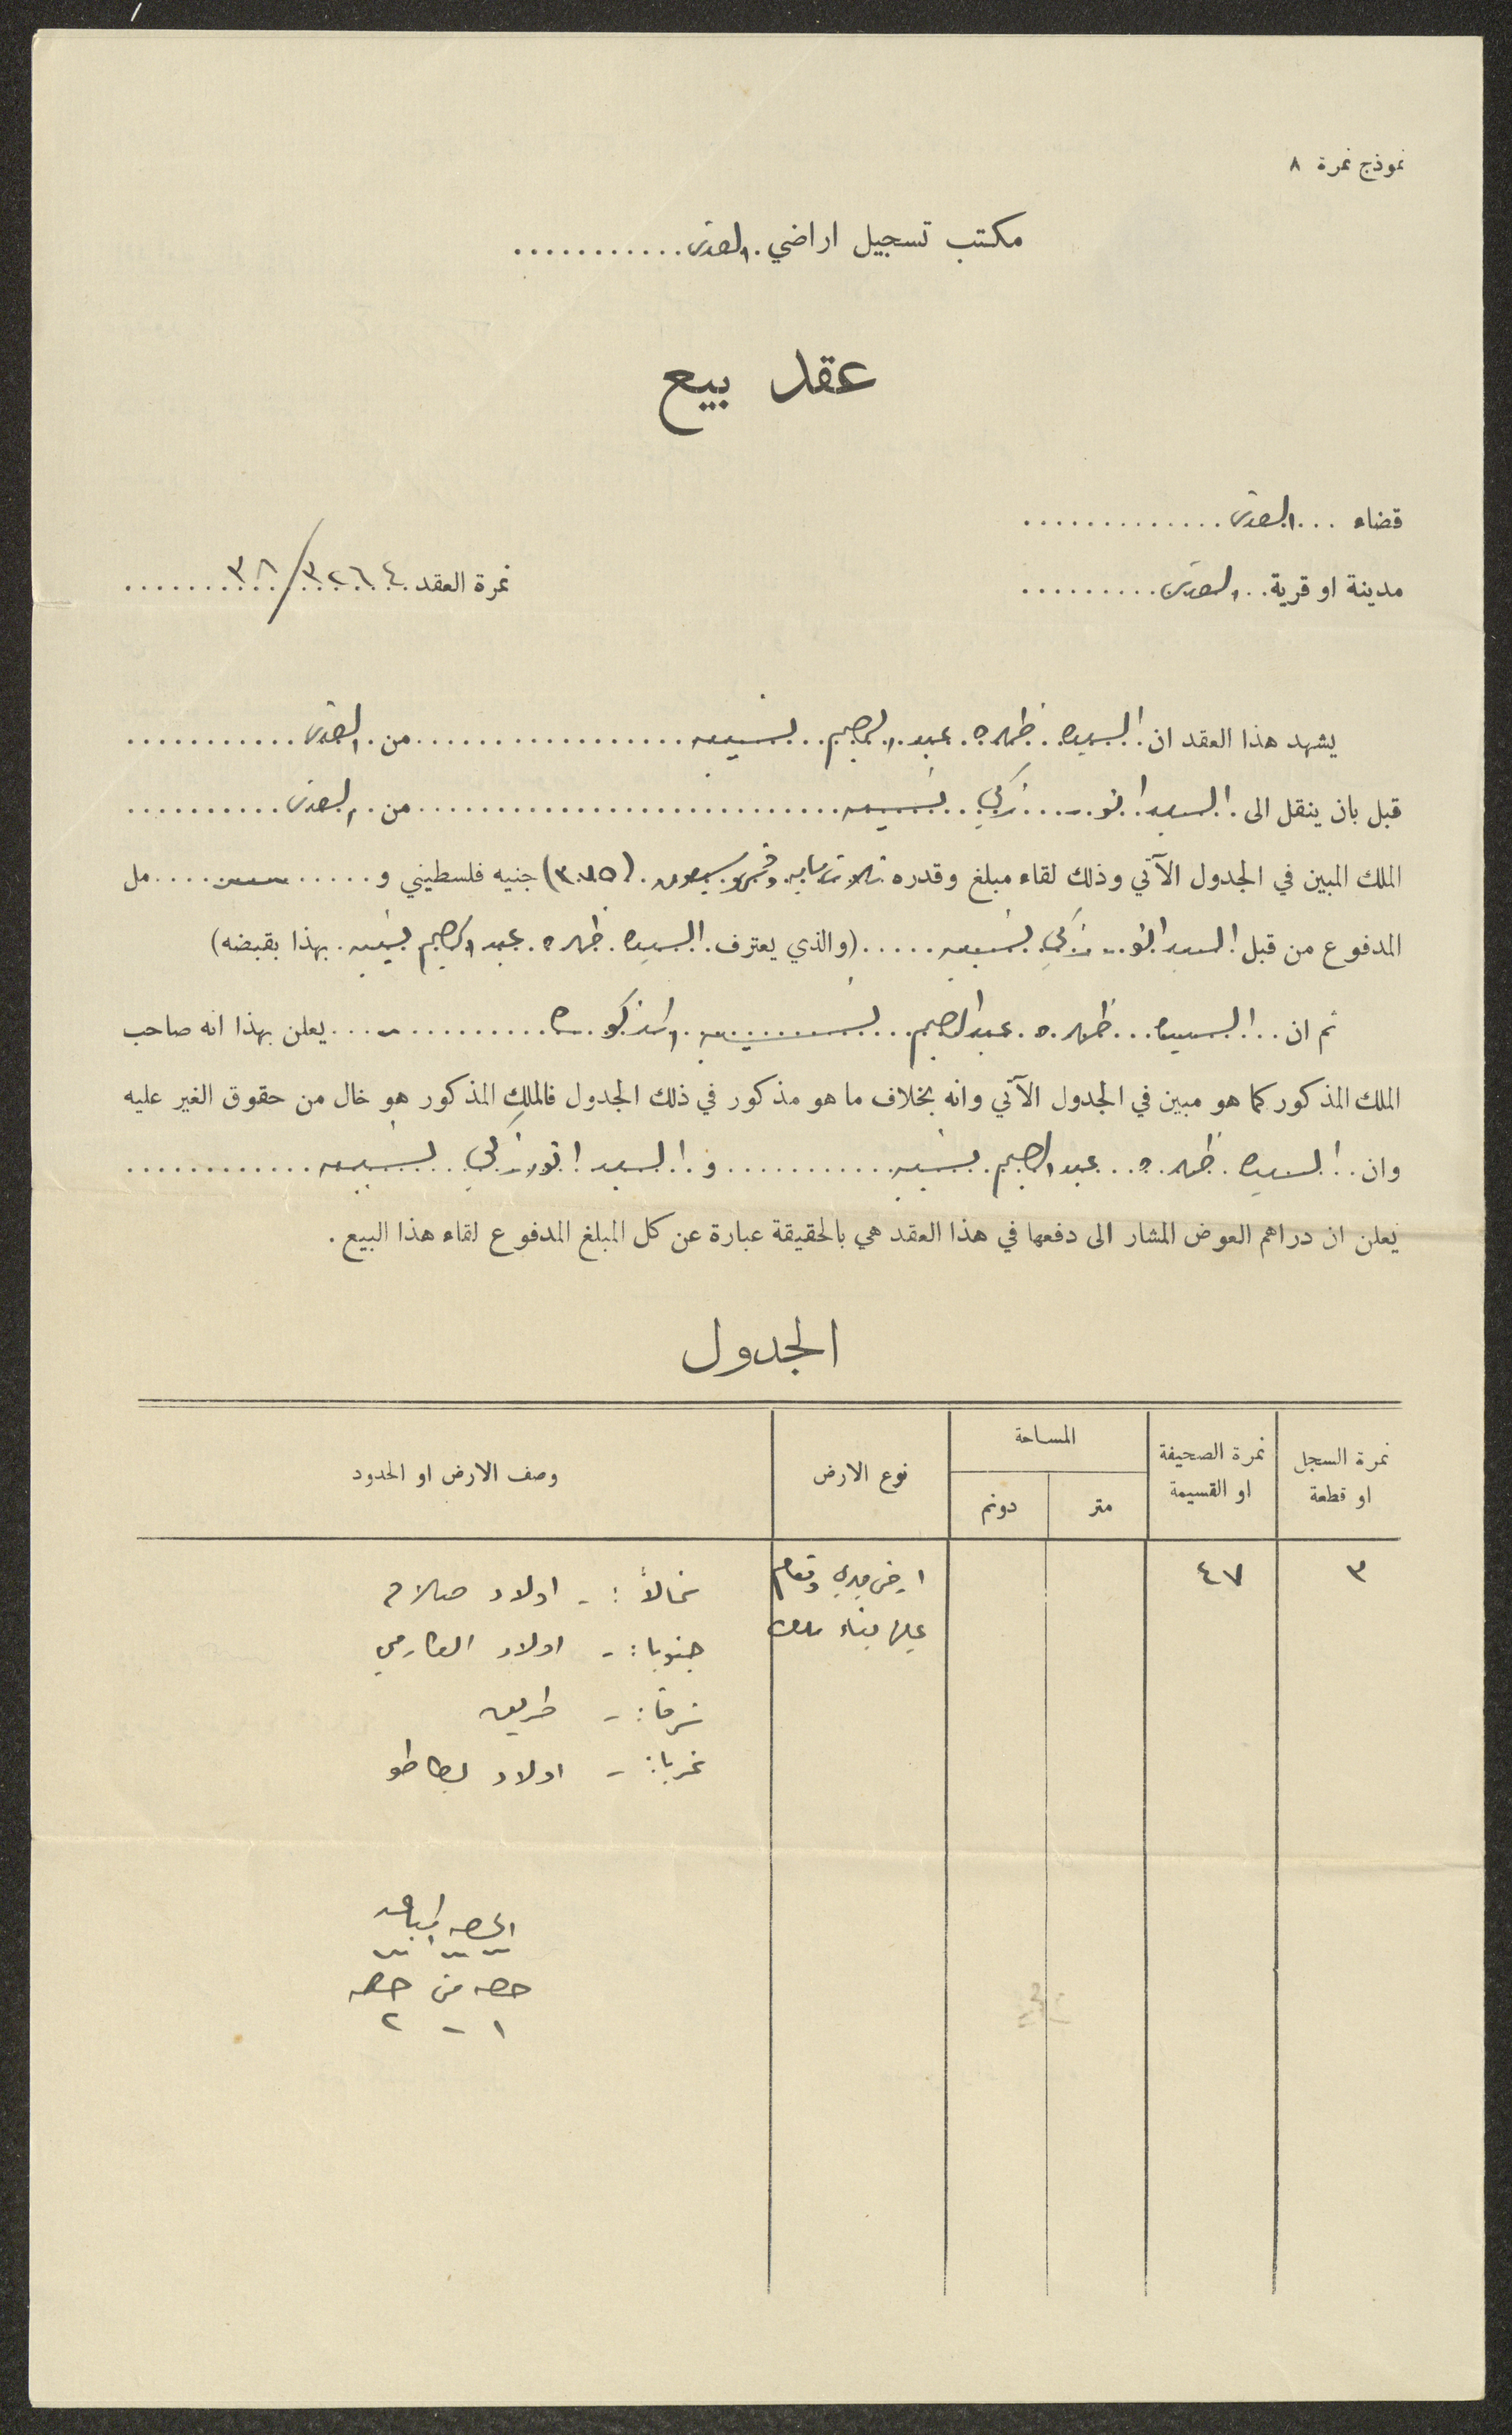 نموذج نمرة ٨
مكتب تسجيل اراضي القدس
عقد بيع
قضاء القدس
مدينة او قرية القدس
نمرة العقد ٣٢٦٤/٣٨
يشهد هذا العقد ان السيده ظهره عبد الرحيم نسيبه من القدس
قبل بان ينقل الى السيد انور زكي نسيبه من القدس
الملك المبين في الجدول الآتي وذلك لقاء مبلغ وقدره ثلاثمايه وخمس وسبعون (٣٧٥) جنيه فلسطيني و مل
المدفوع من قبل السيد انور زكي نسيبه (والذي يعترف السيده ظهره عبد الرحيم نسيبه بهذا بقبضه)
ثم ان السيده ظهره عبد الرحيم نسيبه المذكوره يعلن بهذا انه صاحب
الملك المذكور كما هو مبين في الجدول الآتي وانه بخلاف ما هو مذكور في ذلك الجدول فالملك المذكور هو خال من حقوق الغير عليه
وان السيده ظهره عبد الرحيم نسيبه و السيد انور زكي نسيبه
يعلن ان دراهم العوض المشار الى دفعها في هذا العقد هي بالحقيقة عبارة عن كل المبلغ المدفوع لقاء هذا البيع .
الجدول
نمرة السجل او قطعة
نمرة الصحيفة او القسيمة
المساحة
متر
دونم
نوع الارض
وصف الارض او الحدود
٣
٤٧
ارض ميري وتقام
عليها بناء ملك
شمالاً :- اولاد صلاح
جنوبا :- اولاد
شرقا :- طريق
غربا :- اولاد
الحصه المباعه
حصه من حصه
١ - ٢